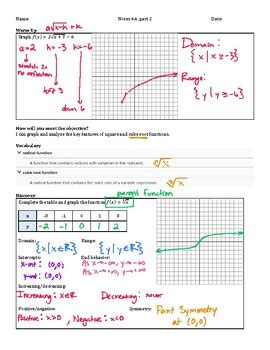 Name
Notes 6.6, part 2
Date
a√x-h = k
Warm Up
Graph f(x) = 2√x + 3 − 6
a=2 h=-3 k=-6
stretch 2x
no reflection
left 3
down 6
Domain:
{x | x ≥ -3}
Range:
{y | y ≥ -6}
How will you meet the objective?
I can graph and analyze the key features of square and cube root functions.
Vocabulary
radical function
A function that contains radicals with variables in the radicand.
√x
cube root function
A radical function that contains the cube root of a variable expression.
∛x
parent function
Discover
Complete the table and graph the function f(x) = ∛x
x -8 -1 0 1 8
y -2 -1 0 1 2
Domain: Range:
{x | x ∈ ℝ} {y | y ∈ ℝ}
Intercepts: End behavior:
x-int: (0,0) As x→∞, y→∞
y-int: (0,0) As x→-∞, y→-∞
Increasing/decreasing:
Increasing: x∈ℝ Decreasing: never
Positive/negative: Symmetry:
Positive: x>0, Negative: x<0
Point Symmetry
at (0,0)